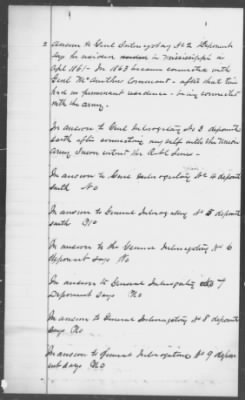 2 answer to Genl Interrogatory No 2 Deponent
says he resident in Mississippi in
Apl 1861 - In 1863 became connected with
Genl McArthurs Command - after that time
had no permanent residence - being connected
with the army.
In answer to Genl Interrogatory No 3 deponent
saith after connecting myself with the Union
Army I never entered the Rebel lines -
In answer to Genl Interrogatory No 4 deponent
saith No
In answer to General Interrogatory No 5 deponent
saith No
In answer to the General Interrogatory No 6
deponent says No
In answer to General Interrogatory 7
Deponent says No
In answer to General Interrogatory No 8 deponent
says No
In answer to General Interrogatory No 9 deponent
says No